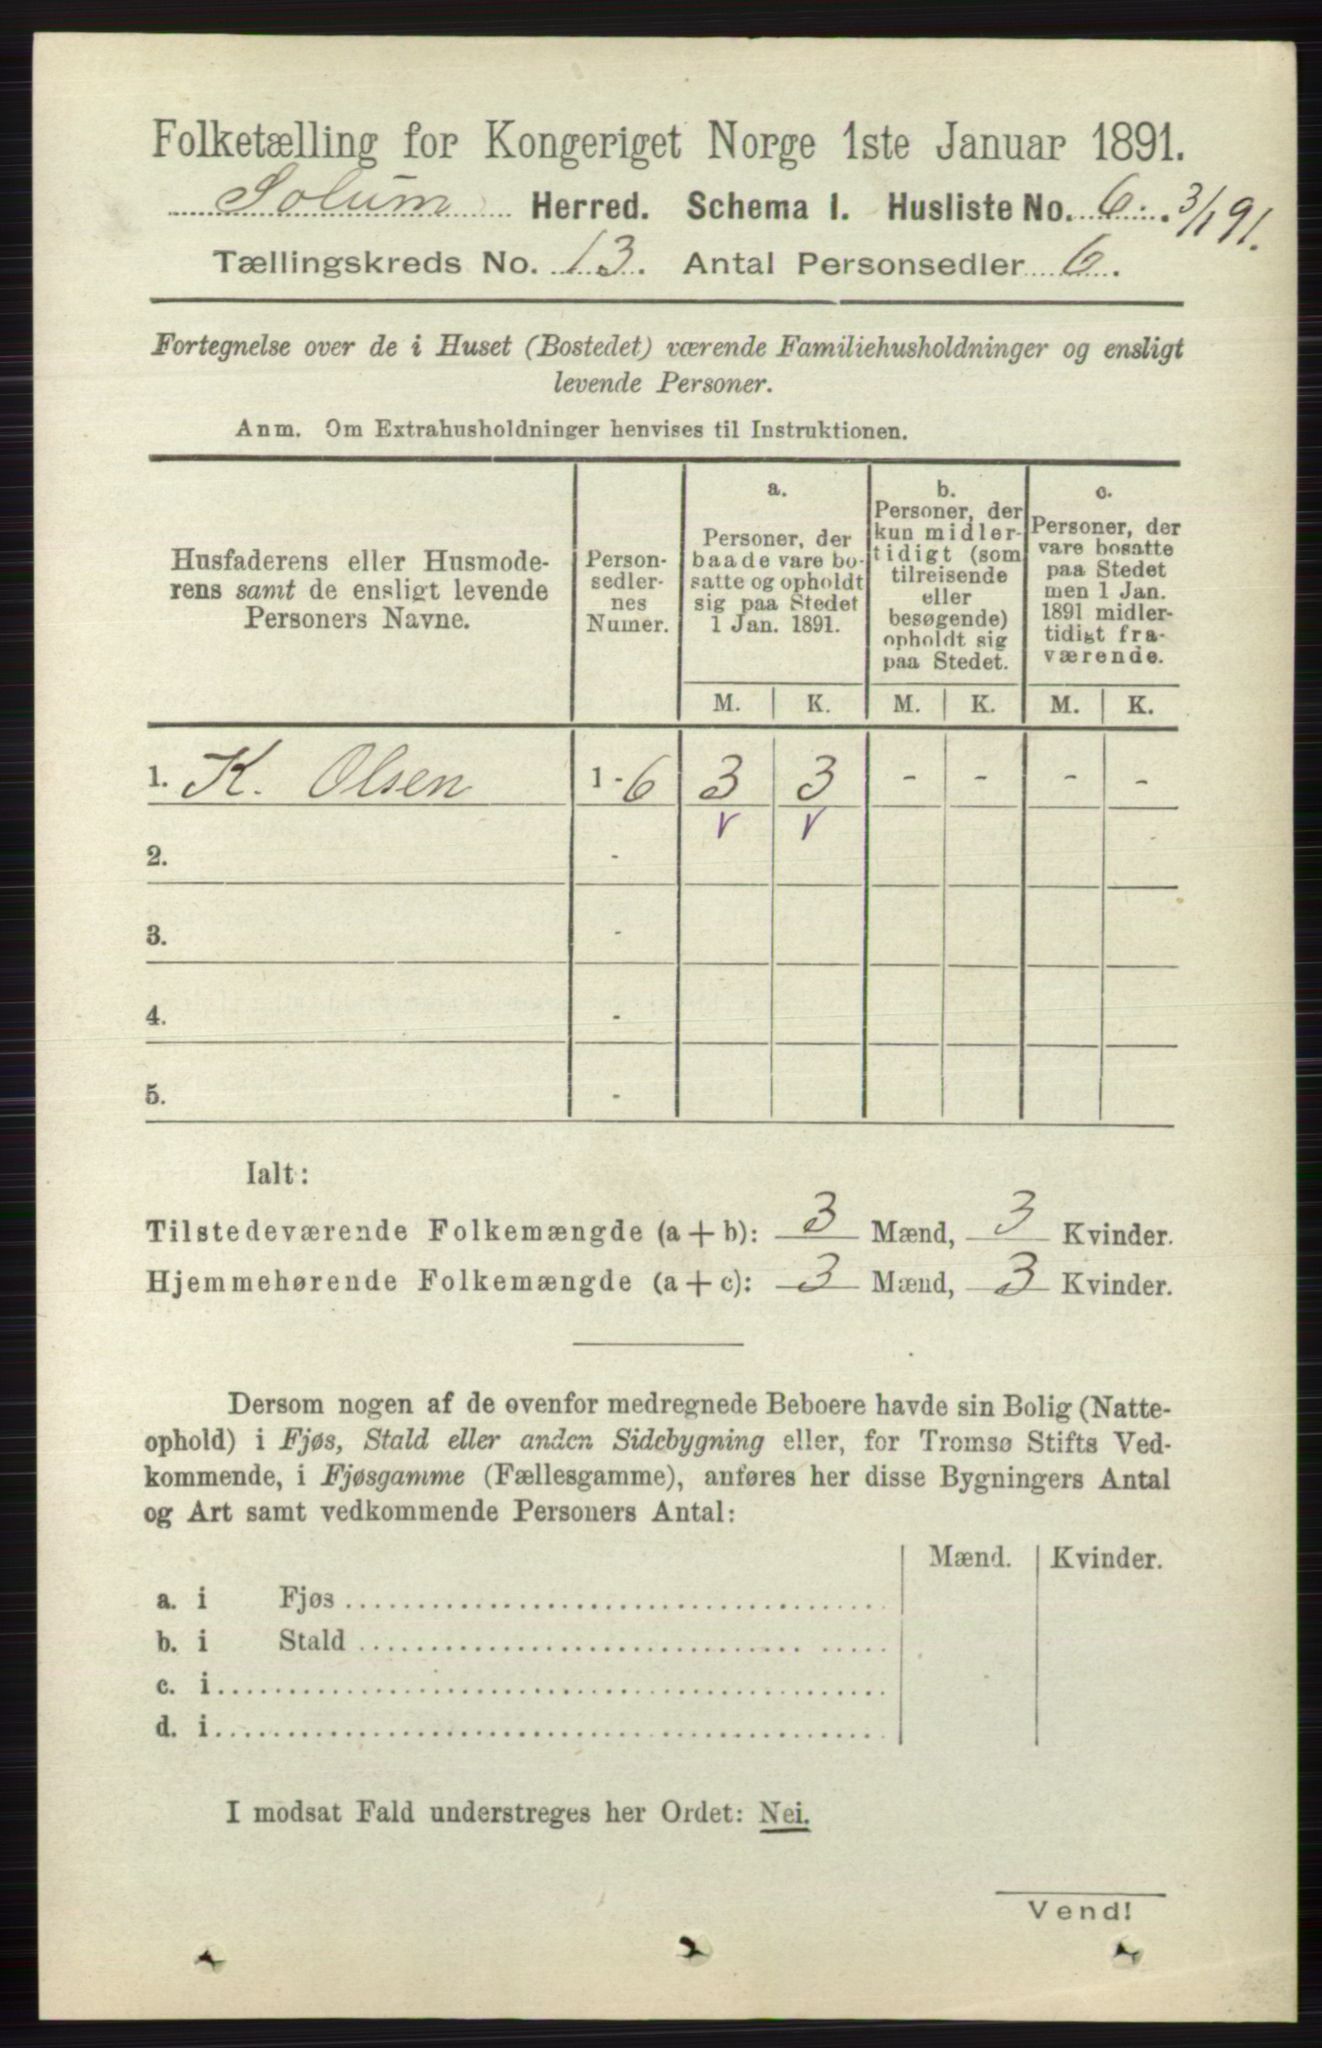 Folketælling for Kongeriget Norge 1ste Januar 1891.
Solum Herred. Schema I. Husliste No. 6. 3/1 91.
Tællingskreds No. 13. Antal Personsedler 6.
Fortegnelse over de i Huset (Bostedet) værende Familiehusholdninger og ensligt
levende Personer.
Anm. Om Extrahusholdninger henvises til Instruktionen.
Husfaderens eller Husmode-
rens samt de ensligt levende
Personers Navne.
Person-
sedler-
nes
Numer.
a.
Personer, der
baade vare bo-
satte og opholdt
sig paa Stedet
1 Jan. 1891.
b.
Personer, der
kun midler-
tidigt (som
tilreisende
eller
besøgende)
opholdt sig
paa Stedet.
c.
Personer, der
vare bosatte
paa Stedet
men 1 Jan.
1891 midler-
tidigt fra-
værende.
M. K. M. K. M. K.
1. K. Olsen 1-6 3 3 - - - -
2. -
3. -
4. -
5. -
Ialt:
Tilstedeværende Folkemængde (a + b): 3 Mænd, 3 Kvinder.
Hjemmehørende Folkemængde (a + c): 3 Mænd, 3 Kvinder.
Dersom nogen af de ovenfor medregnede Beboere havde sin Bolig (Natte-
ophold) i Fjøs, Stald eller anden Sidebygning eller, for Tromsø Stifts Ved-
kommende, i Fjøsgamme (Fællesgamme), anføres her disse Bygningers Antal
og Art samt vedkommende Personers Antal:
Mænd. Kvinder.
a. i Fjøs
b. i Stald
c. i
d. i
I modsat Fald understreges her Ordet: Nei.
Vend!